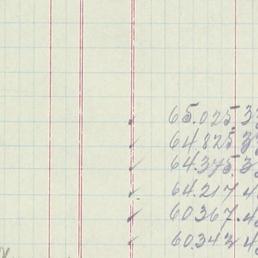 ✓ 65.025.3
✓ 64.825.3
✓ 64.375.3
✓ 64.217.4
✓ 60.367.4
✓ 60.343.4